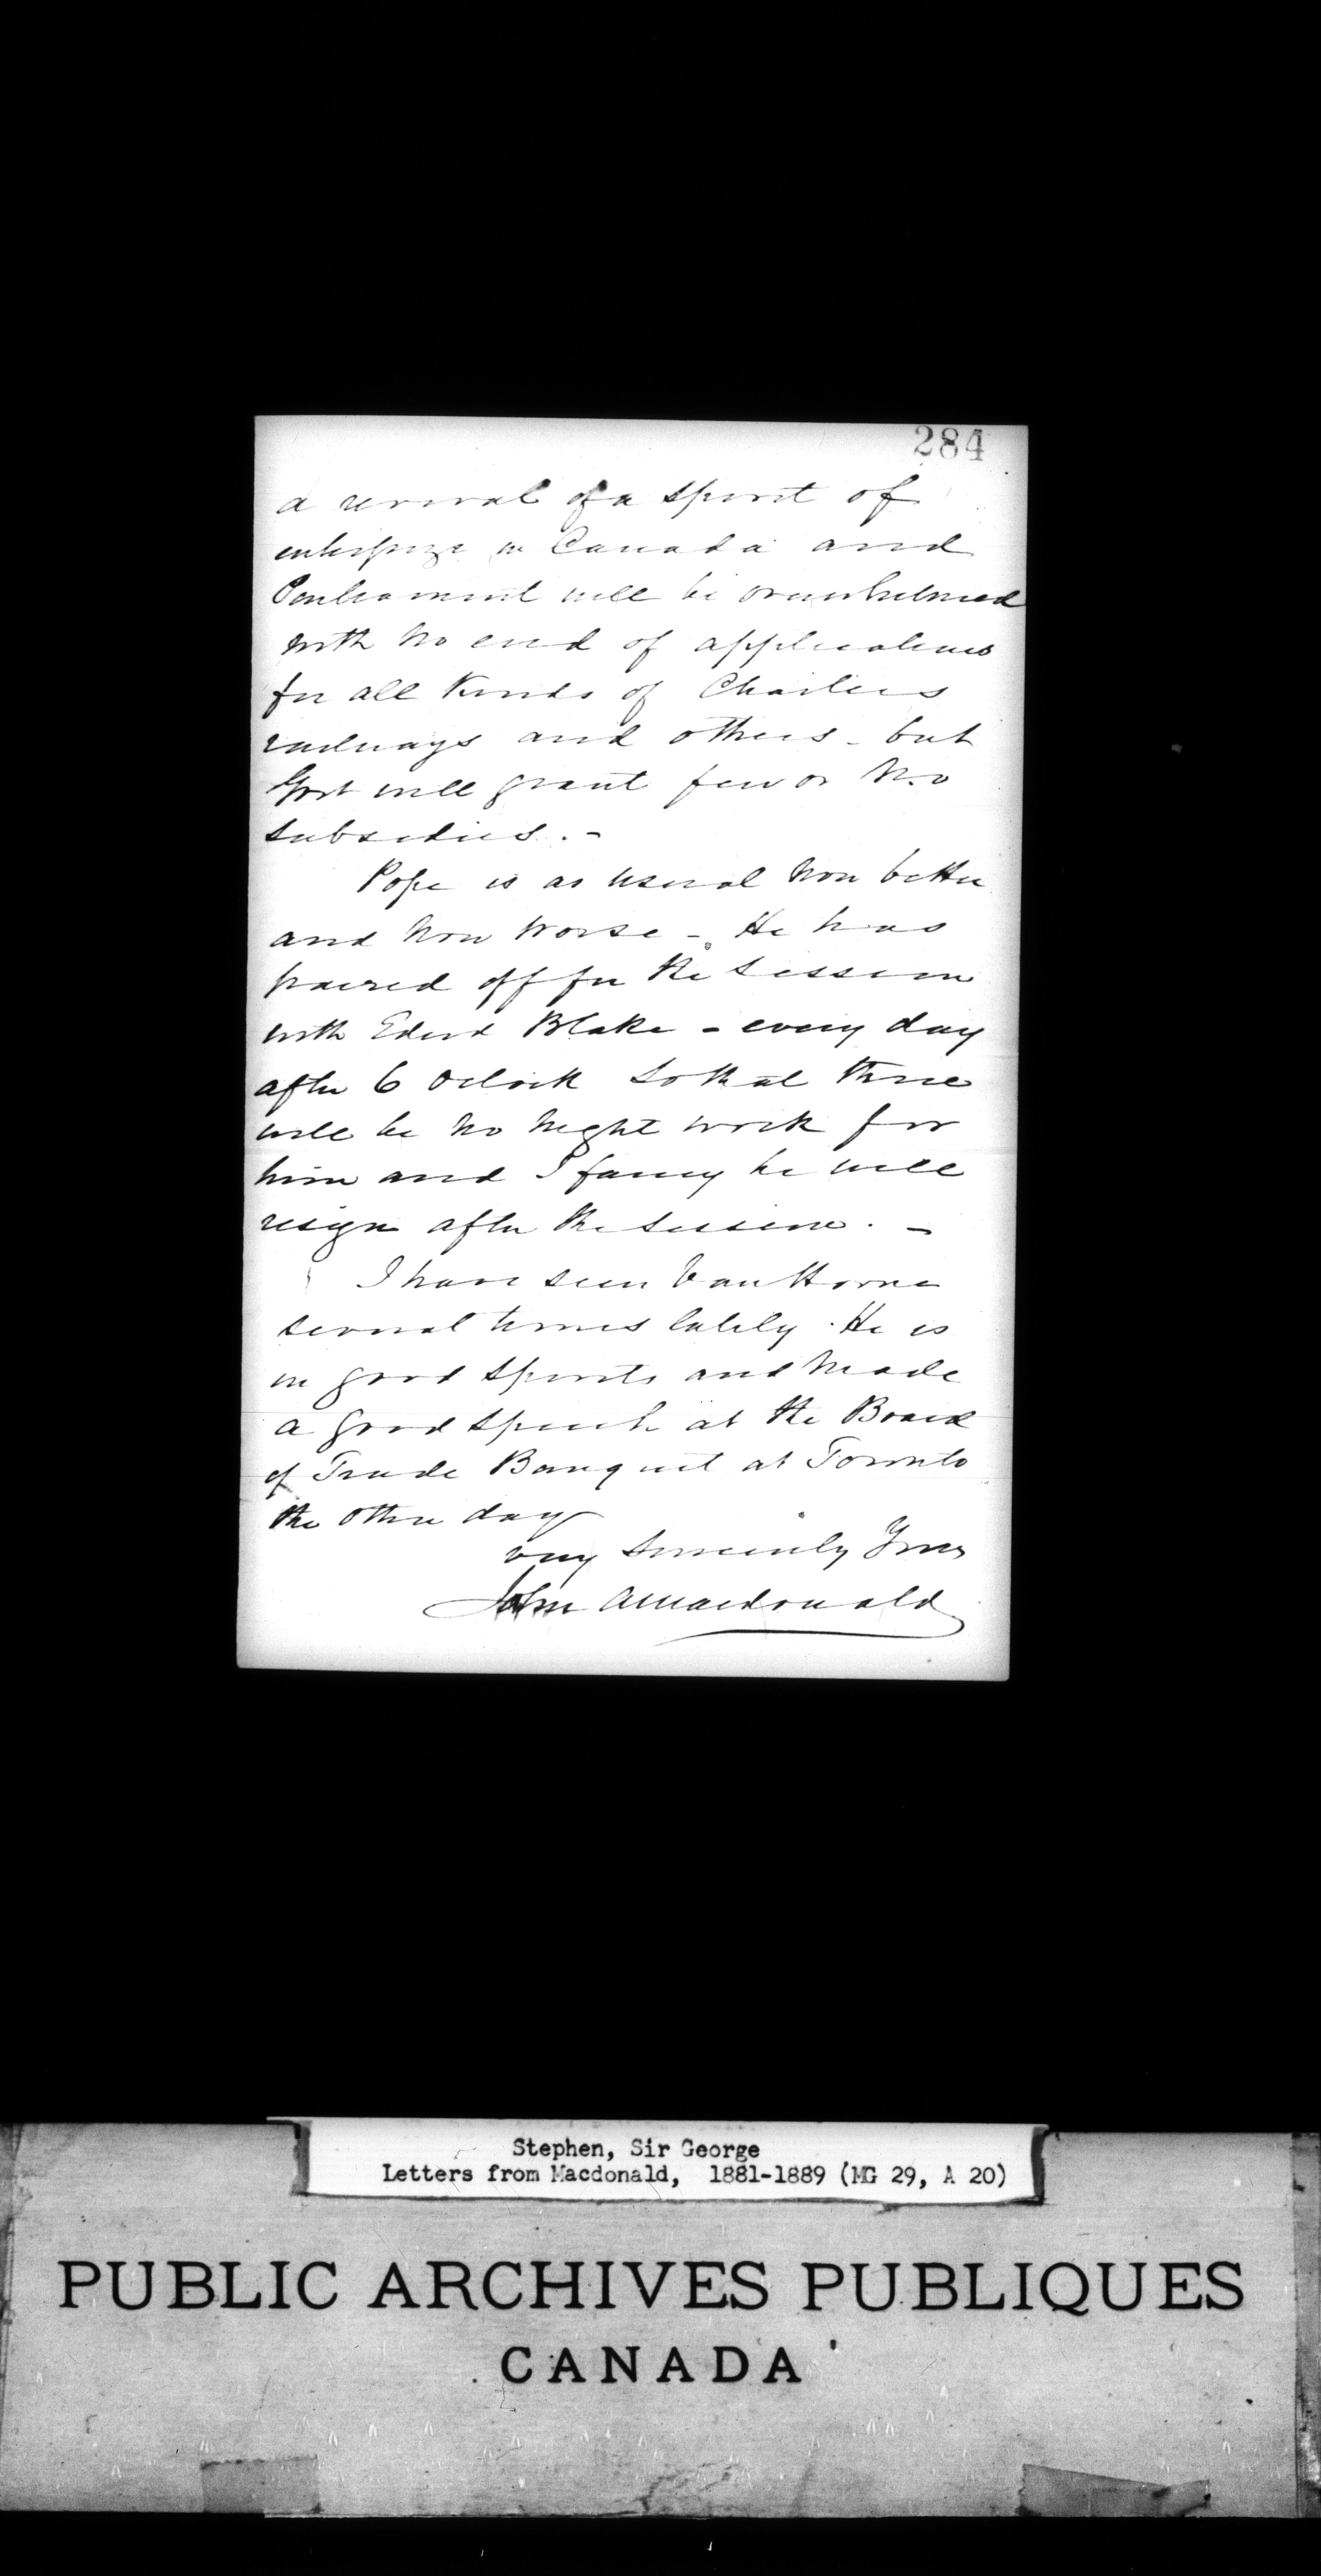 284
a revival of a spirit of
enterprize in Canada and
Parliament will be overwhelmed
with no end of applications
for all kinds of Charters
railways and others - but
Govt will grant few or no
subsidies. -
Pope is as usual now better
and now worse - He has
paired off for the session
with Edwd Blake - every day
after 6 oclock so that there
will be no night work for
him and I fancy he will
resign after the session. -
I have seen Van Horne
several times lately. He is
in good spirits and made
a good speech at the Board
of Trade Banquet at Toronto
the other day
very sincerely Yrs
John A Macdonald
Stephen, Sir George
Letters from Macdonald, 1881-1889 (MG 29, A 20)
PUBLIC ARCHIVES PUBLIQUES
CANADA